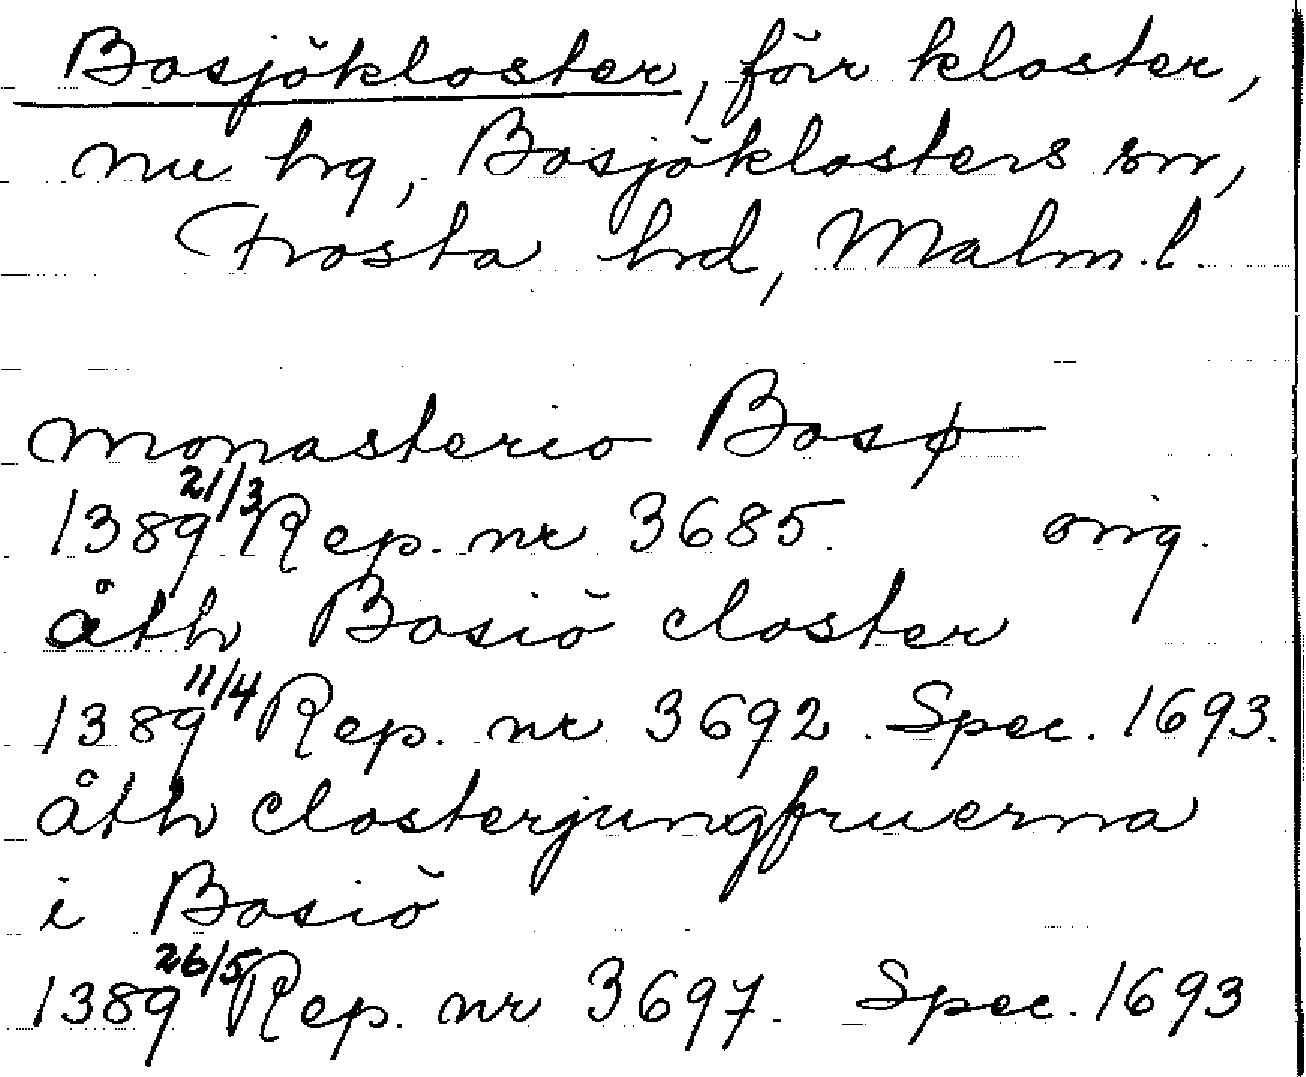 Bosjökloster, förr kloster,
nu hg, Bosjöklosters sn,
Frosta hd, Malm.l.
monasterio Bosø
1389 21/3 Rep. nr 3685. orig.
åth Bosiö closter
1389 11/4 Rep. nr 3692. Spec. 1693.
åth closterjungfruerna
i Bosiö
1389 26/5 Rep. nr 3697. Spec. 1693